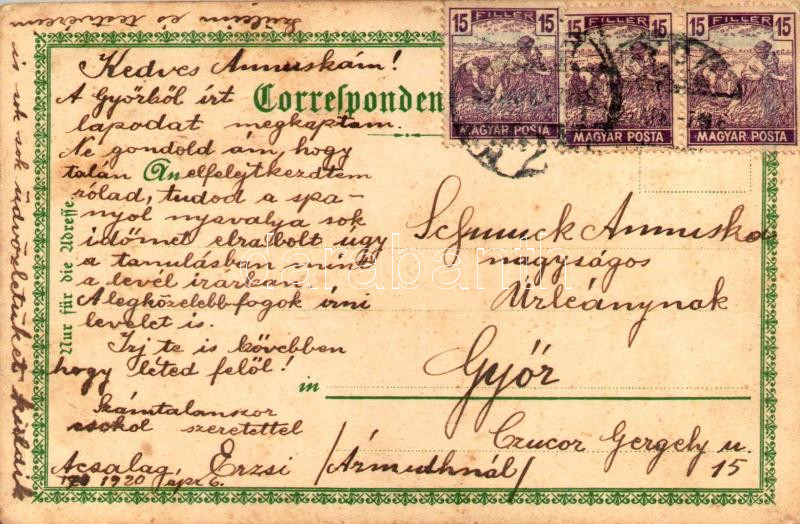 szüleim és testvéreim
is sok sok üdvözletüket küldik
Kedves Annuskám!
A Győrből írt
lapodat megkaptam.
Ne gondold ám, hogy
talán elfelejtkeztem
rólad, tudod a spa-
nyol nyavalya sok
időmet elrabolt úgy
a tanulásban mint
a levél irásban.
A legközelebb fogok írni
levelet is.
Irj te is bővebben
hogy léted felől!
Számtalanszor
csokol szeretettel
Acsalag, Erzsi
1920 apr 6.
Corresponden
An
Nur für die Adresse.
in
15 FILLÉR 15
MAGYAR POSTA
15 FILLÉR 15
MAGYAR POSTA
15 FILLÉR 15
MAGYAR POSTA
Schmuck Annuska
nagyságos
Urleánynak
Győr
Czucor Gergely u.
15
/Ármuthnál/
darabanth